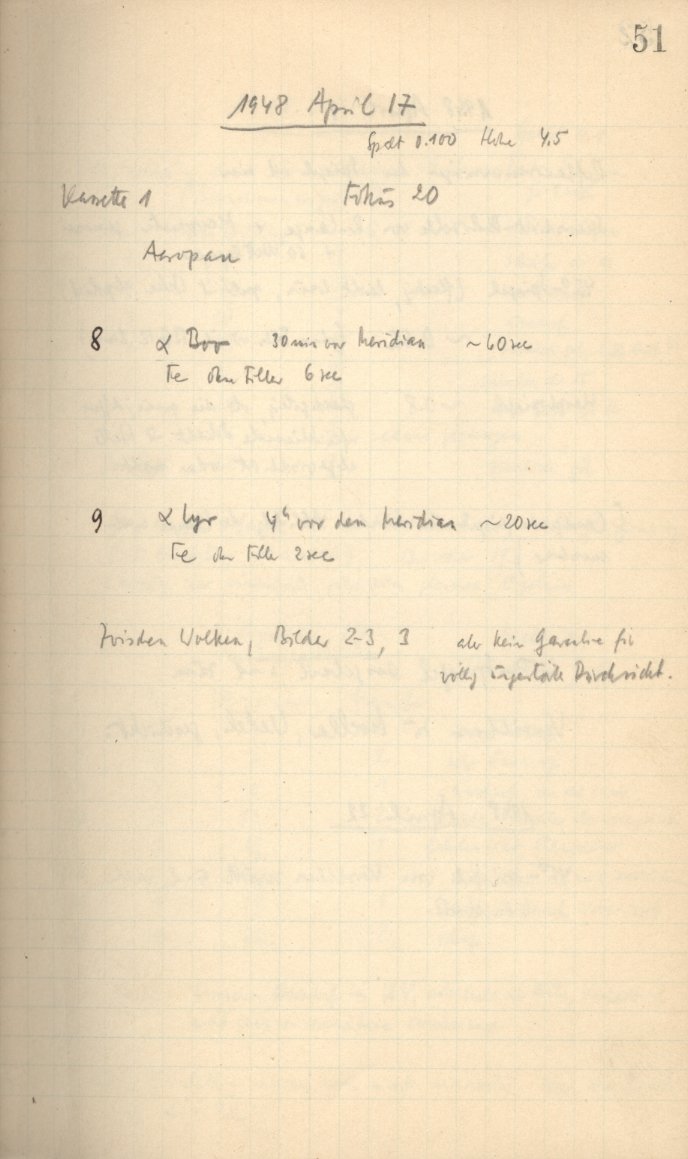 51
1948 April 17
Spalt 0.100 Höhe 4.5
Kassette 1 Fokus 20
Aeropan
8 α Boo 30 min vor Meridian ~60 sec
Fe ohne Filter 6 sec
9 α Lyr 4h vor dem Meridian ~20 sec
Fe ohne Filter 2 sec
Zwischen Wolken, Bilder 2-3, 3 aber kein Garantie für
völlig ungestörte Durchsicht.